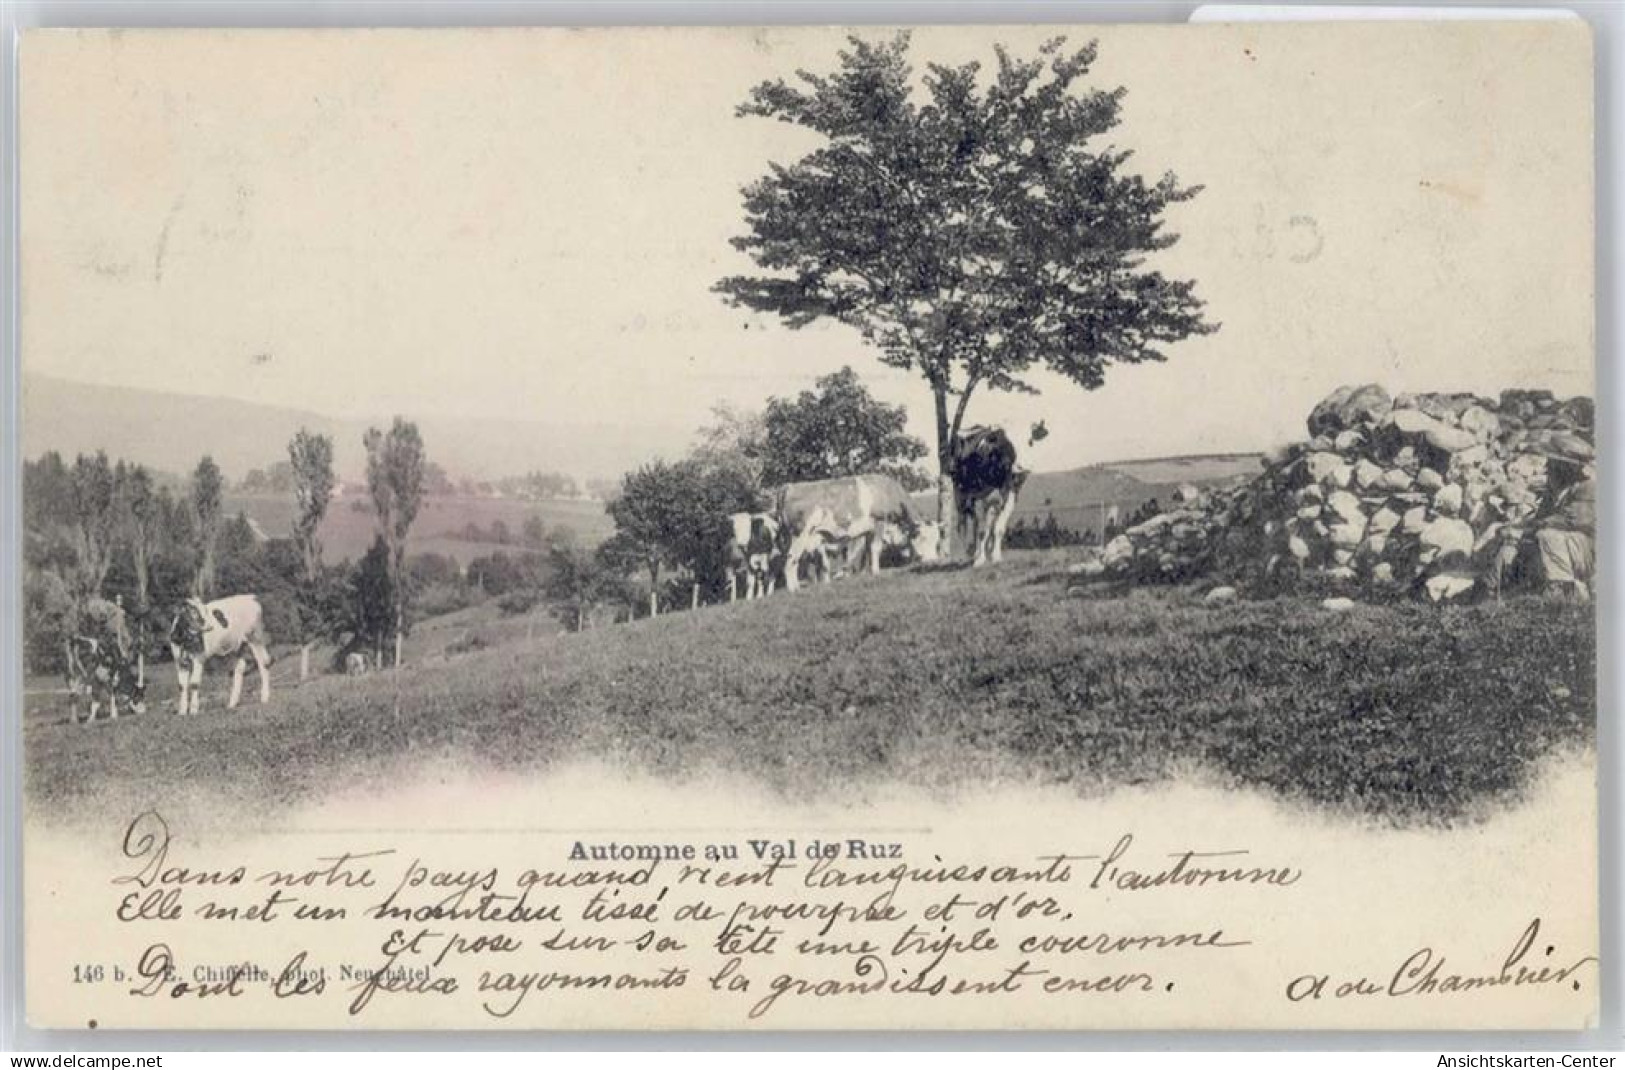 Automne au Val de Ruz
Dans notre pays quand vient languissante l'automne
Elle met un manteau tissé de pourpre et d'or.
Et pose sur sa tête une triple couronne
146 b. E. Chiffelle, phot. Neuchâtel
Dont les feux rayonnants la grandissent encor.
A de Chambrier.
www.mercados.com
Ansichtskarten-Center